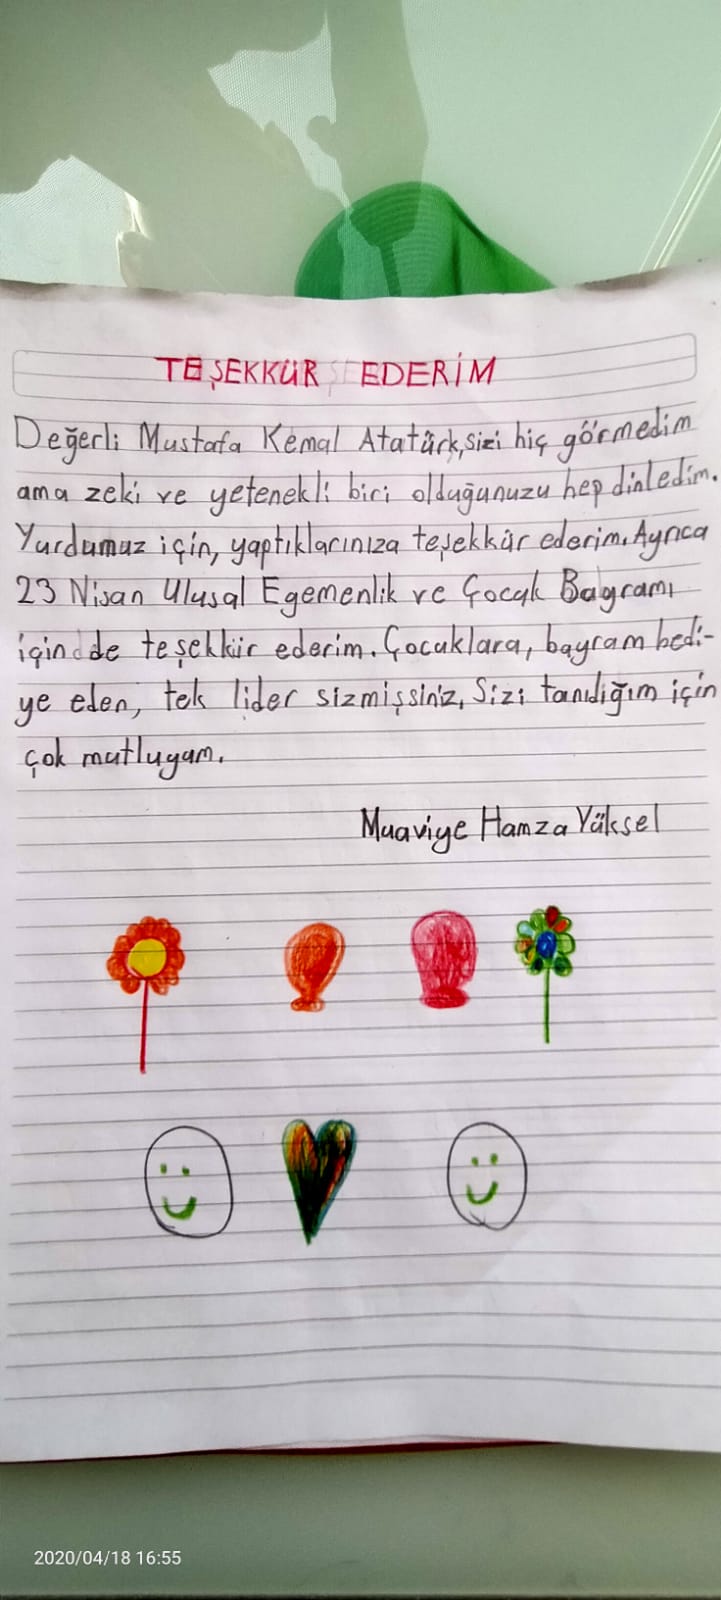 TEŞEKKÜR EDERİM
Değerli Mustafa Kemal Atatürk, sizi hiç görmedim
ama zeki ve yetenekli biri olduğunuzu hep dinledim.
Yurdumuz için, yaptıklarınıza teşekkür ederim. Ayrıca
23 Nisan Ulusal Egemenlik ve Çocuk Bayramı
için de teşekkür ederim. Çocuklara, bayram hedi-
ye eden, tek lider sizmişsiniz. Sizi tanıdığım için
çok mutluyum.
Muaviye Hamza Yüksel
2020/04/18 16:55